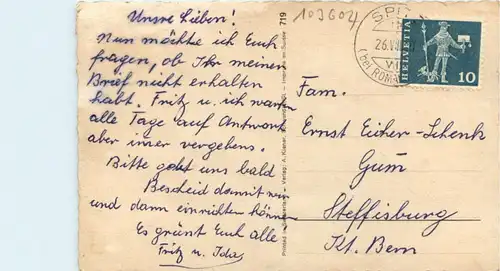 Unsre Lieben!
Nun möchte ich Euch
fragen, ob Ihr meinen
Brief nicht erhalten
habt. Fritz u. ich warten
alle Tage auf Antwort
aber immer vergebens.
Bitte gebt uns bald
Bescheid damit wir
und dann einrichten können
Es grüsst Euch alle
Fritz u. Ida
719
103604
26.VII
HELVETIA
10
Fam.
Ernst Eicher-Schenk
Gum
Steffisburg
Kt. Bern